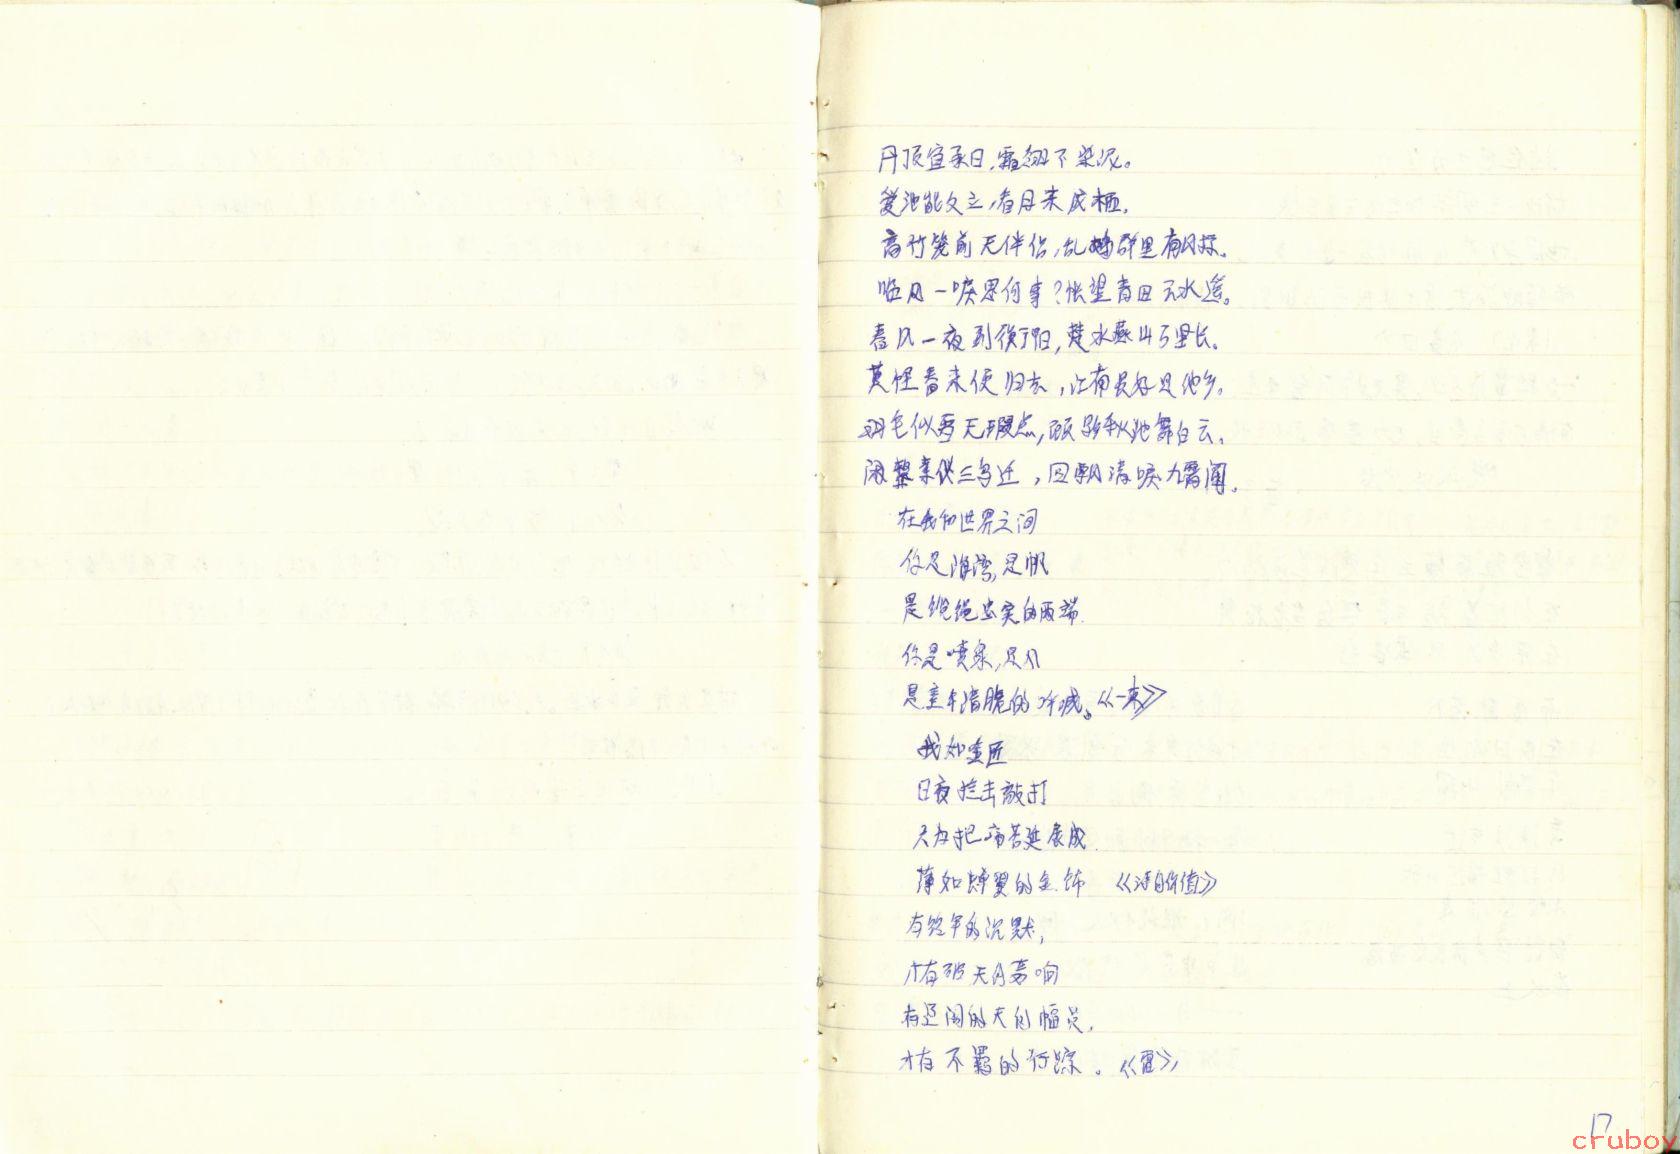 丹顶宜承日，霜翎不染泥。
爱池能久立，看月未成栖。
高竹笼前无伴侣，乱鸡群里有风标。
临风一唳思何事？怅望青田云水遥。
春风一夜到衡阳，楚水燕山万里长。
莫怪春来便归去，江南虽好是他乡。
羽毛似雪无瑕点，顾影秋池舞白云。
闲整素仪三岛近，回飘清唳九霄闻。
在我和世界之间
你是海湾，是帆
是缆绳忠实的两端
你是喷泉，是风
是童年清脆的呼喊。《一束》
我如金匠
日夜捶击敲打
只为把痛苦延展成
薄如蝉翼的金饰 《诗的价值》
有终年的沉默，
才有破天的轰响
有辽阔的天的幅员，
才有不羁的行踪。《雷》
17
cruboy